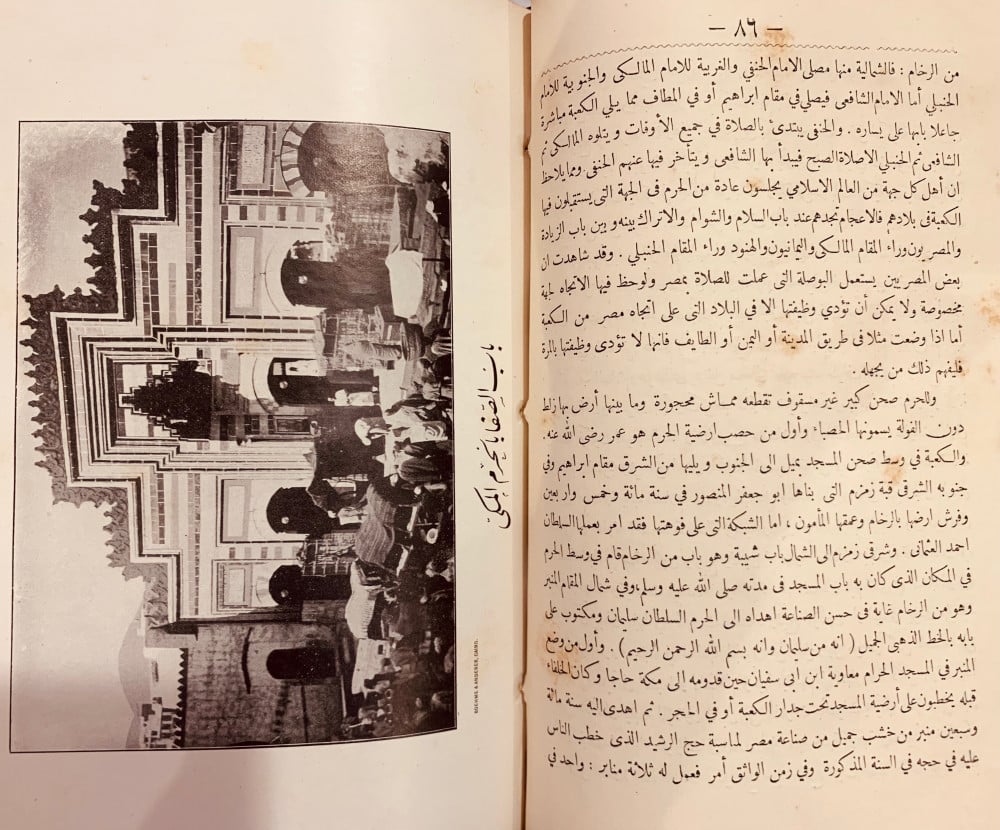 — ٨٦ —
من الرخام : فالشمالية منها مصلى الامام الحنفي والغربية للامام المالكى والجنوبية للامام
الحنبلي أما الامام الشافعى فيصلي في مقام ابراهيم أو في المطاف مما يلي الكعبة مباشرة
جاعلا بابها على يساره . والحنفى يبتدئ بالصلاة في جميع الأوقات ويتلوه المالكى ثم
الشافعى ثم الحنبلي الا صلاة الصبح فيبدأ بها الشافعى ويتأخر فيها عنهم الحنفى . ومما يلاحظ
ان أهل كل جهة من العالم الاسلامي يجلسون عادة من الحرم فى الجهة التى يستقبلون فيها
الكعبة فى بلادهم فالاعجام تجدهم عند باب السلام والشوام والاتراك بينه وبين باب الزيادة
والمصريون وراء المقام المالكى واليمانيون والهنود وراء المقام الحنبلي . وقد شاهدت ان
بعض المصريين يستعمل البوصلة التى عملت للصلاة بمصر ولوحظ فيها الاتجاه لجهة
مخصوصة ولا يمكن أن تؤدي وظيفتها الا في البلاد التى على اتجاه مصر من الكعبة
أما اذا وضعت مثلا فى طريق المدينة أو اليمن أو الطايف فانها لا تؤدى وظيفتها بالمرة
فليفهم ذلك من يجهله .
وللحرم صحن كبير غير مسقوف تقطعه مماش محجورة وما بينها أرض بها زلط
دون الفولة يسمونها الحصباء وأول من حصب ارضية الحرم هو عمر رضى الله عنه .
والكعبة في وسط صحن المسجد بميل الى الجنوب ويليها من الشرق مقام ابراهيم وفي
جنوبه الشرقى قبة زمزم التى بناها ابو جعفر المنصور في سنة مائة وخمس واربعين
وفرش ارضها بالرخام وعمقها المأمون ، اما الشبكة التى على فوهتها فقد امر بعملها السلطان
احمد العثمانى . وشرقى زمزم الى الشمال باب شيبة وهو باب من الرخام قام في وسط الحرم
في المكان الذى كان به باب المسجد فى مدته صلى الله عليه وسلم ، وفي شمال المقام المنبر
وهو من الرخام غاية فى حسن الصناعة اهداه الى الحرم السلطان سليمان ومكتوب على
بابه بالخط الذهبى الجميل ( انه من سليمان وانه بسم الله الرحمن الرحيم ) . وأول من وضع
المنبر في المسجد الحرام معاوية ابن ابى سفيان حين قدومه الى مكة حاجا وكان الخلفاء
قبله يخطبون على أرضية المسجد تحت جدار الكعبة أو في الحجر . ثم اهدى اليه سنة مائة
وسبعين منبر من خشب جميل من صناعة مصر لمناسبة حج الرشيد الذى خطب الناس
عليه في حجه في السنة المذكورة وفي زمن الواثق أمر فعمل له ثلاثة منابر : واحد في
باب الصفا بالحرم المكي
BOEHME & ANDERER, CAIRO.